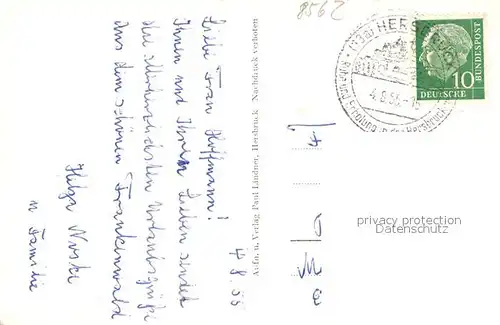 8562
(13a) HERSBRUCK
Ruhe und Erholung in der Hersbrucker
4.8.55.-15
DEUTSCHE BUNDESPOST
10
4.8.55
Liebe Frau Hoffmann!
Ihnen und Ihren Lieben sendet
die allerherzlichsten Urlaubsgrüße
aus dem schönen Frankenwald
Helga
u Familie
Aufn. u. Verlag Paul Lindner, Hersbruck Nachdruck verboten
privacy protection
Datenschutz